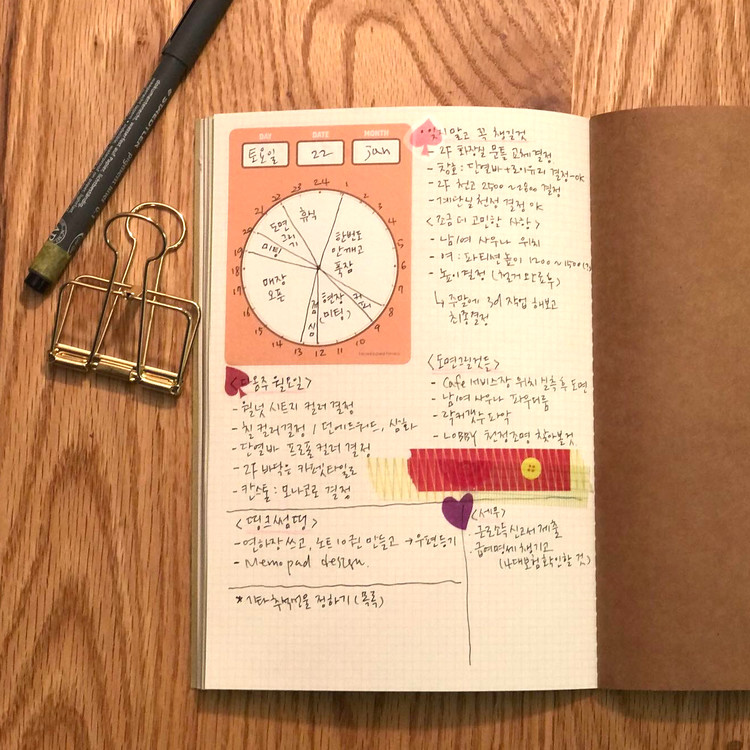 DAY DATE MONTH
토요일 22 Jan
24 1 2 3 4 5 6 7 8 9 10 11 12 13 14 15 16 17 18 19 20 21 22 23
휴식
한번도
안깨고
푹잠
현장
(미팅)
점
심
매장
오픈
미팅
도면
그리
기
잊지 말고 꼭 챙길것
- 2F 화장실 문틀 교체 결정
- 창호 : 단열바 + 로이유리 결정 - OK
- 2F 천고 2500 ~ 2800 결정
- 계단실 천정 결정 OK
<조금 더 고민할 사항>
- 남/여 사우나 위치
- 여 : 파티션 높이 1200 ~ 1500
- 높이결정
↳ 주말에 3d 작업 해보고
최종결정
<도면그릴것들>
- Cafe 서비스장 위치 실측 후 도면
- 남/여 사우나 파우더룸
- 락커갯수 파악
- LOBBY 천정조명 찾아볼것.
<다음주 월요일>
- 월넛 시트지 컬러 결정
- 칠 컬러결정 / 던에드워드, 삼화
- 단열바 프로필 컬러 결정
- 2F 바닥은 카펫타일로
- 칸스톤 : 모나코로 결정
<띵크썸띵>
- 연하장 쓰고, 노트 10권 만들고 → 우편등기
- Memopad design.
* 기타 추석선물 정하기 (목록)
<세무>
. 근로소득신고서 제출
. 급여명세 챙기고
(4대보험 확인할 것)
STAEDTLER
pigment liner